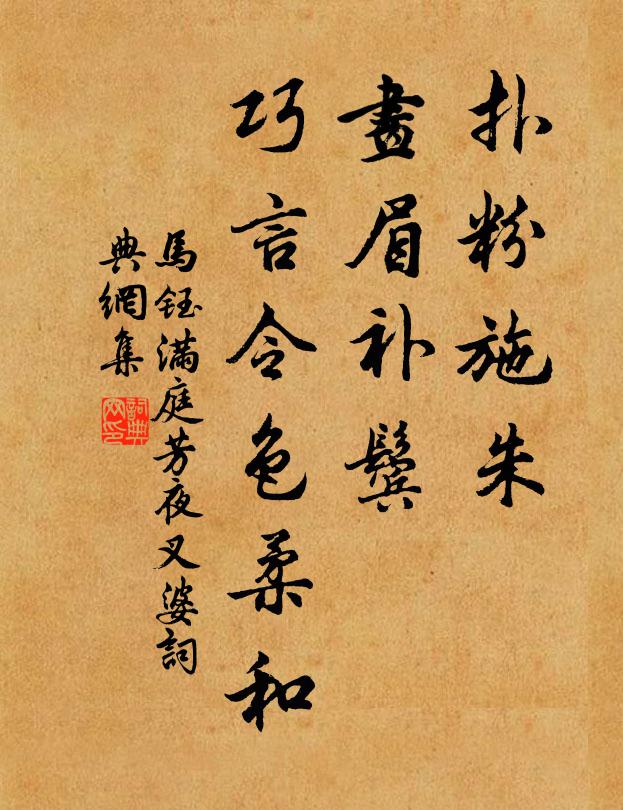 扑粉施朱
畫眉补鬓
巧言令色柔和
馬鈺满庭芳夜叉婆詞
典網集
詞典
网印